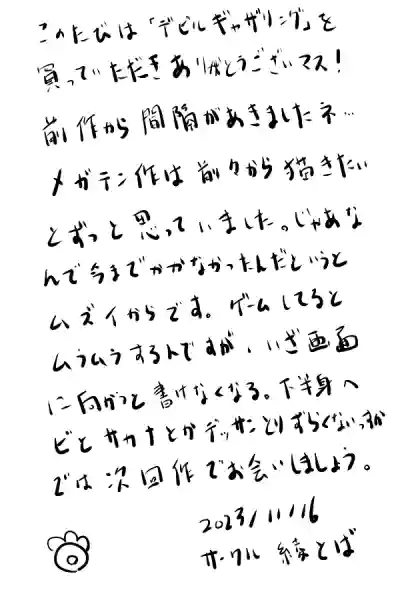 このたびは「デビルギャザリング」を
買っていただきありがとうございマス！
前作から間隔があきましたネ…
メガテン作は前々から描きたい
とずっと思っていました。じゃあな
んで今までかかなかったんだというと
ムズイからです。ゲームしてると
ムラムラするんですが、いざ画面
に向かうと書けなくなる。下半身ヘ
ビとサカナとかデッサンとりずらくないっすか
では次回作でお会いしましょう。
2023/11/16
サークル 綾とば